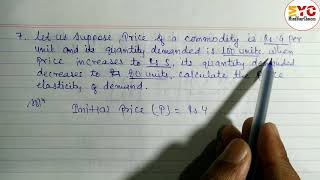 SYC
7. Let us suppose, Price of a commodity is Rs 4 per
unit and its quantity demanded is 100 units. When
price increases to Rs 5, its quantity demanded
decreases to 80 units, calculate the
elasticity of demand.
Initial Price (P) = Rs 4